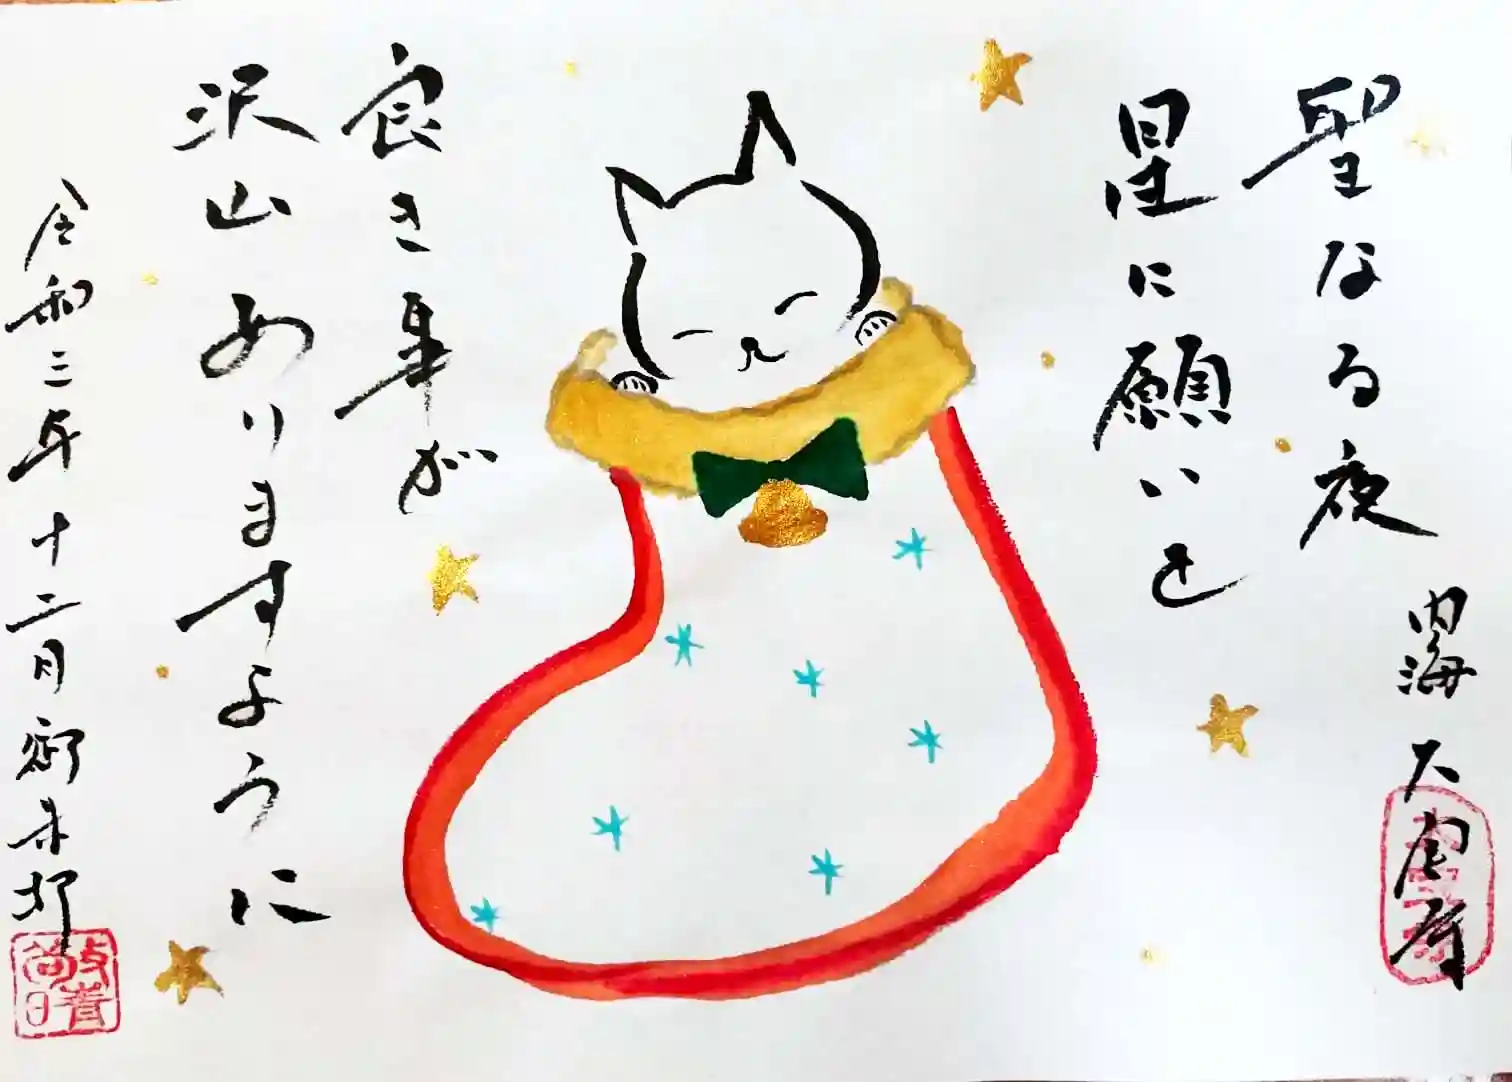 聖なる夜
星に願いを
良き事が
沢山ありますように
内海
令和三年十二月